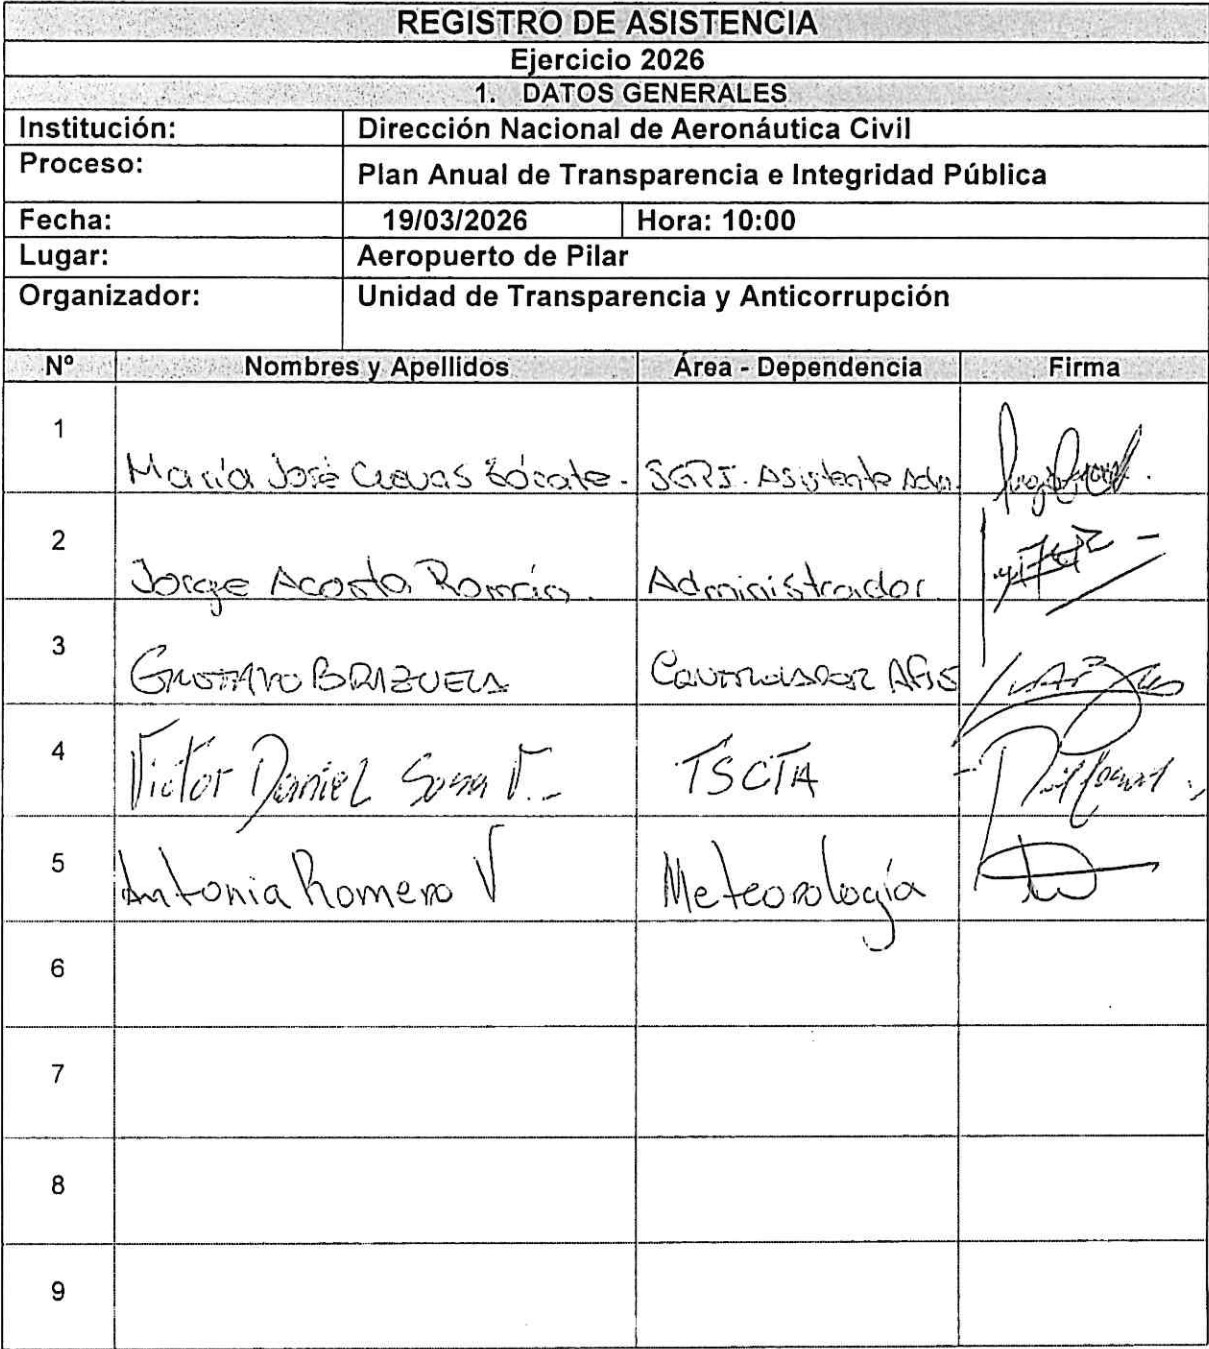 REGISTRO DE ASISTENCIA
Ejercicio 2026
1. DATOS GENERALES
Institución: Dirección Nacional de Aeronáutica Civil
Proceso: Plan Anual de Transparencia e Integridad Pública
Fecha: 19/03/2026 Hora: 10:00
Lugar: Aeropuerto de Pilar
Organizador: Unidad de Transparencia y Anticorrupción
Nº Nombres y Apellidos Área - Dependencia Firma
1 María José Cuevas Asistente Adm.
2 Jorge Acosta Román. Administrador.
3 GUSTAVO BRAZUELA CONTROLADOR AFIS
4 Victor Daniel Sosa V. TSCTA
5 Antonia Romero V Meteorología
6
7
8
9